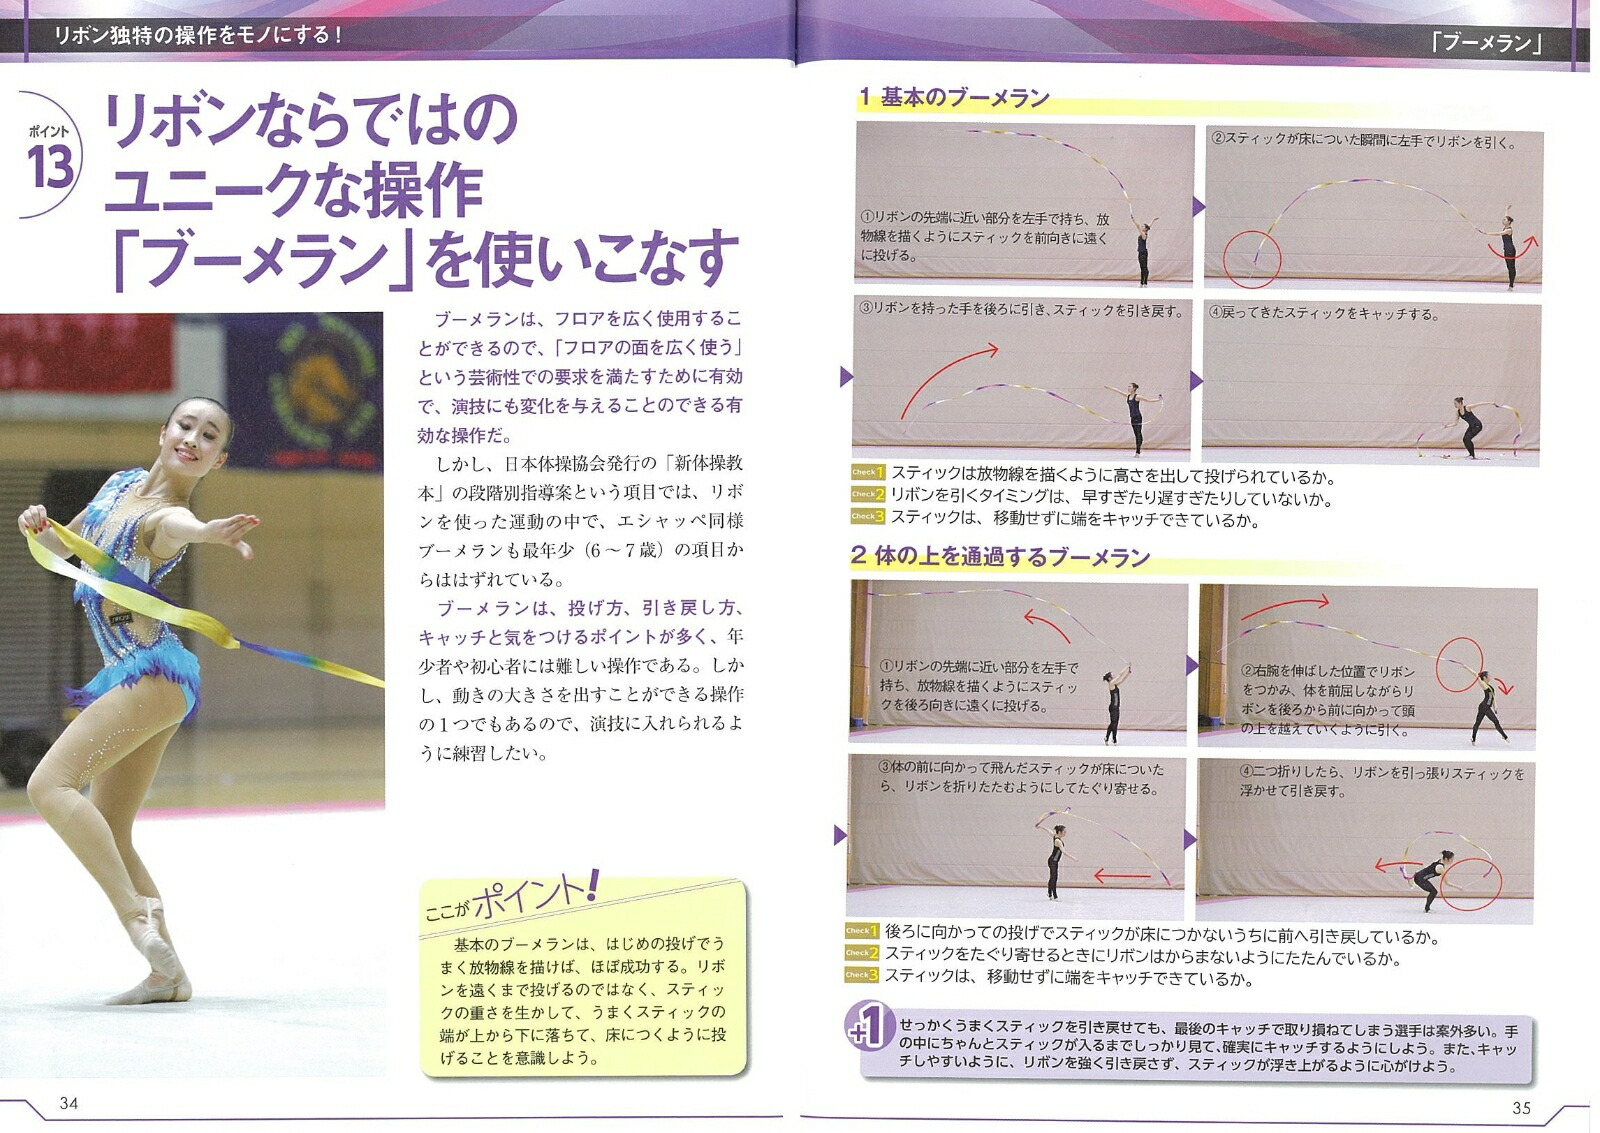 リボン独特の操作をモノにする!
ポイント
13
リボンならではの
ユニークな操作
「ブーメラン」を使いこなす
ブーメランは、フロアを広く使用するこ
とができるので、「フロアの面を広く使う」
という芸術性での要求を満たすために有効
で、演技にも変化を与えることのできる有
効な操作だ。
しかし、日本体操協会発行の「新体操教
本」の段階別指導案という項目では、リボ
ンを使った運動の中で、エシャッペ同様
ブーメランも最年少(6〜7歳)の項目か
らははずれている。
ブーメランは、投げ方、引き戻し方、
キャッチと気をつけるポイントが多く、年
少者や初心者には難しい操作である。しか
し、動きの大きさを出すことができる操作
の1つでもあるので、演技に入れられるよ
うに練習したい。
ここがポイント!
基本のブーメランは、はじめの投げでう
まく放物線を描けば、ほぼ成功する。リボ
ンを遠くまで投げるのではなく、スティッ
クの重さを生かして、うまくスティックの
端が上から下に落ちて、床につくように投
げることを意識しよう。
34
「ブーメラン」
1 基本のブーメラン
①リボンの先端に近い部分を左手で持ち、放
物線を描くようにスティックを前向きに遠く
に投げる。
②スティックが床についた瞬間に左手でリボンを引く。
③リボンを持った手を後ろに引き、スティックを引き戻す。
④戻ってきたスティックをキャッチする。
Check1 スティックは放物線を描くように高さを出して投げられているか。
Check2 リボンを引くタイミングは、早すぎたり遅すぎたりしていないか。
Check3 スティックは、移動せずに端をキャッチできているか。
2 体の上を通過するブーメラン
①リボンの先端に近い部分を左手で
持ち、放物線を描くようにスティッ
クを後ろ向きに遠くに投げる。
②右腕を伸ばした位置でリボン
をつかみ、体を前屈しながらリ
ボンを後ろから前に向かって頭
の上を越えていくように引く。
③体の前に向かって飛んだスティックが床についた
ら、リボンを折りたたむようにしてたぐり寄せる。
④二つ折りしたら、リボンを引っ張りスティックを
浮かせて引き戻す。
Check1 後ろに向かっての投げでスティックが床につかないうちに前へ引き戻しているか。
Check2 スティックをたぐり寄せるときにリボンはからまないようにたたんでいるか。
Check3 スティックは、移動せずに端をキャッチできているか。
+1
せっかくうまくスティックを引き戻せても、最後のキャッチで取り損ねてしまう選手は案外多い。手
の中にちゃんとスティックが入るまでしっかり見て、確実にキャッチするようにしよう。また、キャッ
チしやすいように、リボンを強く引き戻さず、スティックが浮き上がるように心がけよう。
35